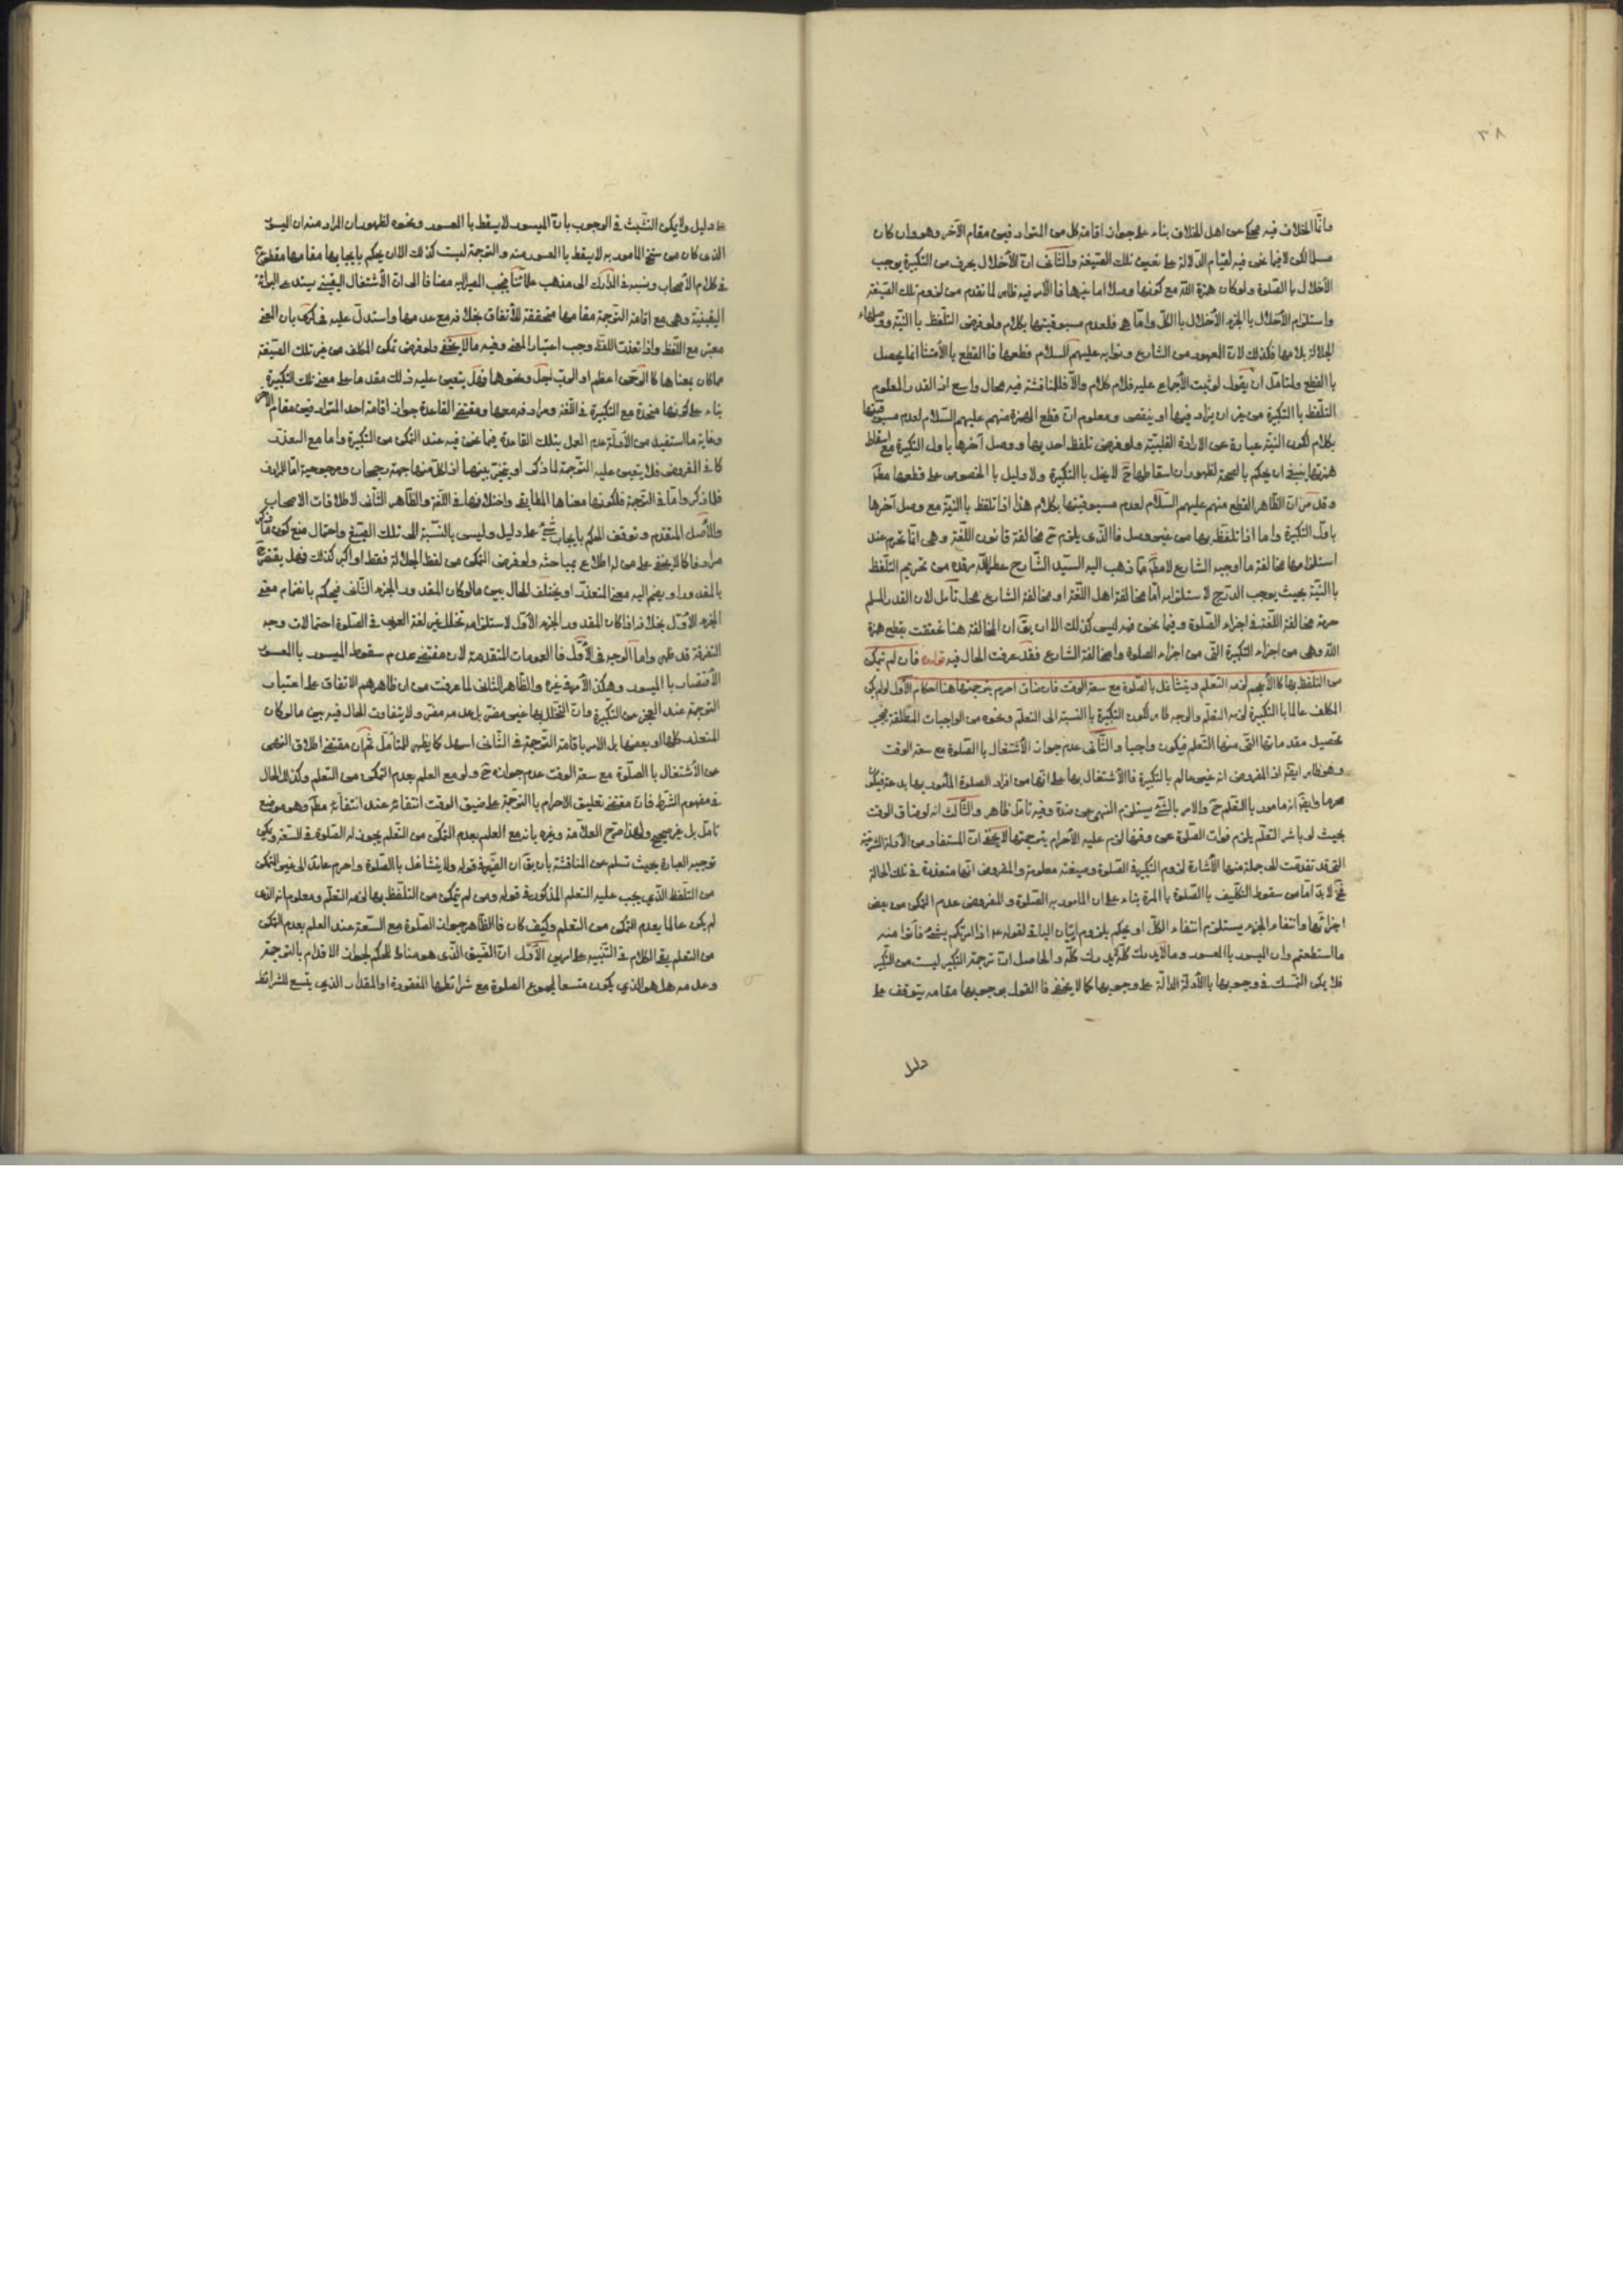 ٣٨
وانما الخلاف فيه محكى عن اهل الخلاف بناء على جواز اقامة كل من المترادفين مقام الآخر وهو وان كان
مسلما لكن لا فيما نحن فيه لقيام الدلالة على تعيين تلك الصيغة والثانى ان الأخلال بحرف من التكبيرة يوجب
الأخلال بالصلوة ولو كان همزة الله مع كونها وصلا اما غيرها فالأمر فيه ظاهر لما تقدم من لزوم تلك الصيغة
واستلزام الأخلال بالجزء الأخلال بالكل واما هى فلعدم مسبوقيتها بكلام ولو فرض التلفظ بالنية ووصلها
الجلالة بلامها فكذلك لان المعهود من الشارع ونوابه عليهم السلام قطعها فالقطع بالأمتثال انما يحصل
بالقطع ولمتامل ان يقول لو ثبت الأجماع عليه فلا كلام والا فللمناقشة فيه مجال واسع اذ القدر المعلوم
التلفظ بالتكبيرة من غير ان يزاد فيها او ينقص ومعلوم ان قطع الهمزة منهم عليهم السلام لعدم مسبوقيتها
بكلام لكون النية عبارة عن الارادة القلبية ولو فرض تلفظ احد بها ووصل آخرها باول التكبيرة مع اسقاط
همزتها ينبغى ان يحكم بالصحة لظهور ان اسقاطها ح لا يخل بالتكبيرة ولا دليل بالخصوص على قطعها مطلقا
وقد مر ان الظاهر القطع منهم عليهم السلام لعدم مسبوقيتها بكلام هذا اذا تلفظ بالنية مع وصل آخرها
باول التكبيرة واما اذا تلفظ بها من غير وصل فالذى يلزم ح مخالفة قانون اللغة وهى انما تحرم عند
استلزامها مخالفة ما اوجبه الشارع لا مطلقا مما ذهب اليه السيد الشارح عطر الله مرقده من تحريم التلفظ
بالنية بحيث يوجب الدرج لاستلزامه اما مخالفة اهل اللغة او مخالفة الشارع محل تأمل لان القدر المسلم
حرمة مخالفة اللغة فى اجزاء الصلوة وفيما نحن فيه ليس كذلك الا ان يق ان المخالفة هنا تحققت بقطع همزة
الله وهى من اجزاء التكبيرة التى من اجزاء الصلوة واما مخالفة الشارع فقد عرفت الحال فيه قوله فان لم يتمكن
من التلفظ بها كالأعجم لزمه التعلم ولا يتشاغل بالصلوة مع سعة الوقت فان ضاق احرم بترجمتها هنا احكام الأول لو لم يكن
المكلف عالما بالتكبيرة لزمه التعلم والوجه ظاهر لكون التكبيرة بالنسبة الى التعلم ونحوه من الواجبات المطلقة فيجب
تحصيل مقدماتها التى منها التعلم فيكون واجبا والثانى عدم جواز الأشتغال بالصلوة مع سعة الوقت
وهو ظاهر ايضا اذ المفروض انه غير عالم بالتكبيرة فالأشتغال بها على انها من افراد الصلوة المأمور بها بدعة فيكون
محرما وايضا انه مامور بالتعلم ح والامر بالشئ يستلزم النهى عن ضده وفيه تامل ظاهر والثالث انه لو ضاق الوقت
بحيث لو باشر التعلم يلزم فوات الصلوة عن وقتها لزم عليه الأحرام بترجمتها لا يخفى ان المستفاد من الأدلة الشرعية
التى قد تقدمت الى جملة منها الأشارة لزوم التكبير فى الصلوة وصيغته معلومة والمفروض انها متعذرة فى تلك الحالة
فح لا بد اما من سقوط التكليف بالصلوة بالمرة بناء على ان المامور به الصلوة والمفروض عدم التمكن من بعض
اجزائها وانتفاء الجزء يستلزم انتفاء الكل او يحكم بلزوم اتيان الباقى لقوله ع اذا امرتكم بشئ فأتوا منه
ما استطعتم وان الميسور بالمعسور وما لا يدرك كله لا يدرك كله والحاصل ان ترجمة التكبير ليست من التكبير
فلا يمكن التمسك فى وجوبها بالأدلة الدالة على وجوبها كما لا يخفى فالقول بوجوبها مقامه يتوقف على
دليل
على دليل ولا يمكن التشبث فى الوجوب بان الميسور لا يسقط بالمعسور ونحوه لظهور ان المراد منه ان الميسور
الذى كان من سنخ المامور به لا يسقط بالمعسور منه والترجمة ليست كذلك الا ان يحكم بايجابها مقامها مقطوع
فى كلام الأصحاب ونسبه فى المدارك الى مذهب علمائنا فيجب المصير اليه مضافا الى ان الأشتغال اليقينى يستدعى البرائة
اليقينية وهى مع اقامة الترجمة مقامها متحققة للأتفاق بخلافه مع عدمها واستدل عليه فى كرى بان المعنى
معتبر مع اللفظ واذا تعذر اللفظ وجب اعتبار المعنى وفيه ما لا يخفى ولو فرض تمكن المكلف من غير تلك الصيغة
مما كان بمعناها كالرحمن اعظم او الرب اجل ونحوها فهل يتعين عليه ذلك مقدما على معنى تلك التكبيرة
بناء على كونها متحدة مع التكبيرة فى اللغة ومرادفه معها ومقتضى القاعدة جواز اقامة احد المترادفين مقام الآخر
وغاية ما استفيد من الأدلة عدم العمل بتلك القاعدة فيما نحن فيه عند التمكن من التكبيرة واما مع التعذر
كما هو المفروض فلا يتعين عليه الترجمة لما ذكر او يتخير بينهما اذ لكل منهما جهة رجحان ومرجوحية اما المرادف
فلما ذكر واما فى الترجمة فلكونها معناها المطابقى واختلافها فى اللغة والظاهر الثانى لاطلاقات الاصحاب
والأصل المتقدم وتوقف الحكم بايجاب شئ على دليل وليس بالنسبة الى تلك الصيغ واحتمال منع كون
مرادفا كما لا يخفى على من له اطلاع بمباحثه ولو فرض التمكن من لفظ الجلالة فقط او اكبر كذلك فهل يقتصر
بالمقدور او يضم اليه معنى المتعذر او يختلف الحال بين ما لو كان المقدور الجزء الثانى فيحكم بانضمام معنى
الجزء الأول بخلاف اذا كان المقدور الجزء الأول لاستلزامه تخلل غير لغة العرب فى الصلوة احتمالات وجه
التفرقة قد ظهر واما الوجه فى الأول فالعمومات المتقدمة لان مقتضى عدم سقوط الميسور بالمعسور
الأقتصار بالميسور وهكذا الأمر فى غيره والظاهر الثانى لما عرفت من ان ظاهرهم الاتفاق على اعتبار
الترجمة عند العجز عن التكبيرة وان التخلل بها غير مضر بل عدمه مضر ولا يتفاوت الحال فيه بين ما لو كان
المتعذر كلها او بعضها بل الامر باقامة الترجمة فى الثانى اسهل كما يظهر للمتأمل ثم ان مقتضى اطلاق النهى
عن الأشتغال بالصلوة مع سعة الوقت عدم جوازه ح ولو مع العلم بعدم التمكن من التعلم وكذا الحال
فى مفهوم الشرط فان مقتضى تعليق الاحرام بالترجمة على ضيق الوقت انتفائه عند انتفائه مطلقا وهو موضع
تامل بل غير صحيح ولهذا صرح العلامة وغيره بانه مع العلم بعدم التمكن من التعلم يجوز له الصلوة فى السعة ويمكن
توجيه العبارة بحيث تسلم عن المناقشة بأن يق ان الضمير فى قوله ولا يتشاغل بالصلوة واحرم عائد الى غير المتمكن
من التلفظ الذى يجب عليه التعلم المذكور فى قوله ومن لم يتمكن من التلفظ بها لزمه التعلم ومعلوم انه الذى
لم يكن عالما بعدم التمكن من التعلم وكيف كان فالظاهر جواز الصلوة مع السعة عند العلم بعدم التمكن
من التعلم بقى الكلام فى التنبيه على امرين الأول ان الضيق الذى هو مناط للحكم بجواز الاقدام بالترجمة
وعدمه هل هو الذى يكون متسعا لمجموع الصلوة مع شرائطها المفقودة او المقدار الذى يتسع للشرائط